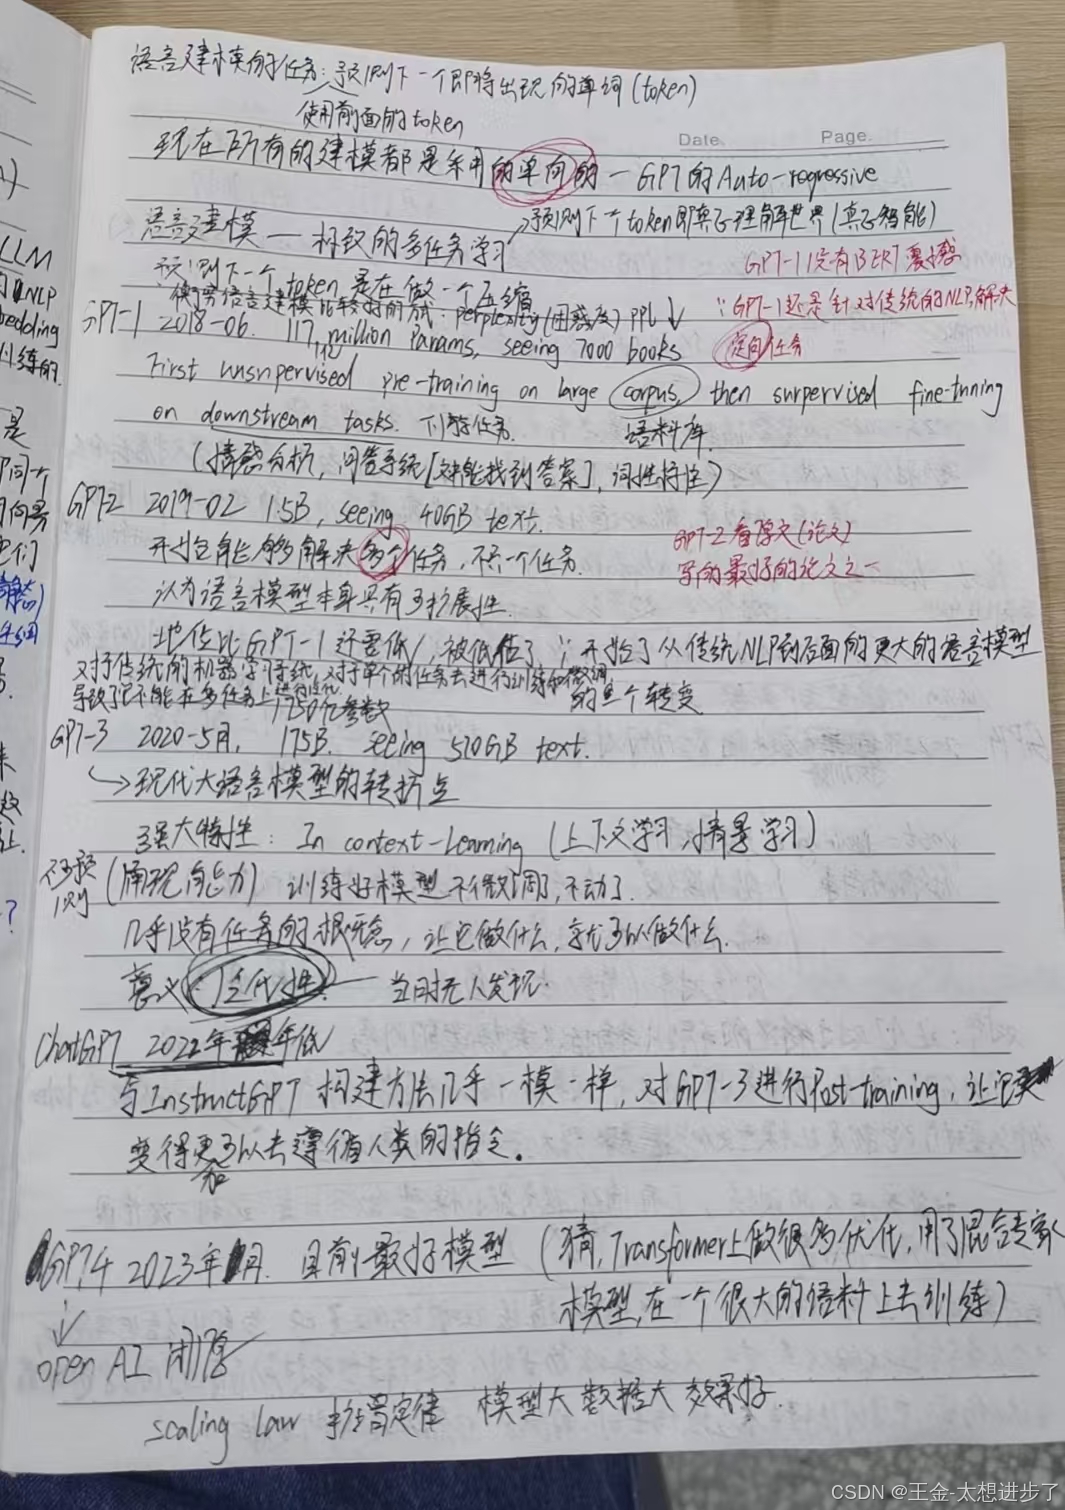 语言建模的任务:预测下一个即将出现的单词(token)
使用前面的token
Date. Page.
现在所有的建模都是采用的单向的—GPT的Auto-rogressive
语言建模—极致的多任务学习 →预测下一个token即真正理解世界(真正智能)
预测下一个token是在做一个压缩
GPT-1没有BERT震撼
衡量语言建模比较好的方式:perplexity(困惑度)PPL↓
∵GPT-1还是针对传统的NLP,解决
定向任务
GPT-1 2018-06. 117 million Params, seeing 7000 books
First unsupervised pre-training on large corpus, then surpervised fine-tuning
on downstream tasks. 下游任务. 语料库
(情感分析,问答系统[就能找到答案],词性标注)
GPT-2 2019-02 1.5B, seeing 40GB text.
开始能够解决多个任务,不只一个任务.
GPT-2看原文(论文)
写的最好的论文之一
认为语言模型本身具有可扩展性.
地位比GPT-1还要低,被低估了 ∵开始了从传统NLP到后面的更大的语言模型
的一个转变
对于传统的机器学习系统,对于单个的任务去进行训练和微调
导致了它不能在多任务上进行
1750亿参数
GPT-3 2020-5月, 175B. seeing 570GB text.
→现代大语言模型的转折点
强大特性: In context-Learning (上下文学习,情景学习)
不可预测 (涌现能力) 训练好模型不微调了,不动了
几乎没有任务的概念,让它做什么,就可以做什么.
意义:1 划时代性. — 当时无人发现.
ChatGPT 2022年 年低
与InstructGPT 构建方法几乎一模一样,对GPT-3进行Post-training,让它
变得更加可以去遵循人类的指令.
GPT4 2023年 月. 目前最好模型 (猜,Transformer上做很多优化,用了混合专家
模型,在一个很大的语料上去训练)
open AI 闭源
scaling law 扩增定律 模型大 数据大 效果好.
LLM
NLP
bedding
训练的.
是
同一个
向与
它们
?
CSDN @王金-太想进步了